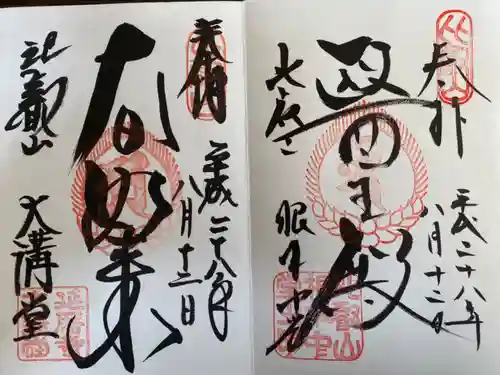 奉拝
平成二十八年
八月十二日
醫王殿
根本中堂
奉拝
平成二十八年
八月十二日
大日如来
比叡山
大講堂